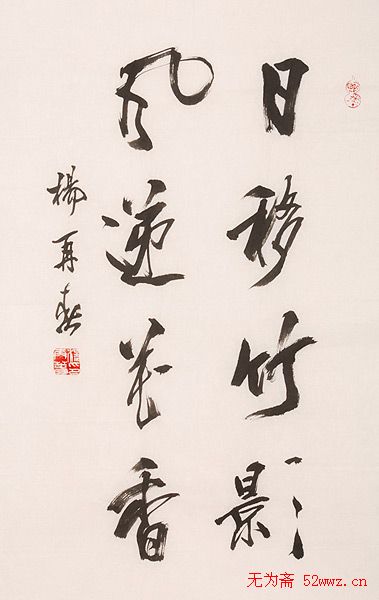 日移竹影
风递花香
杨再春
无为斋 52wwz.cn